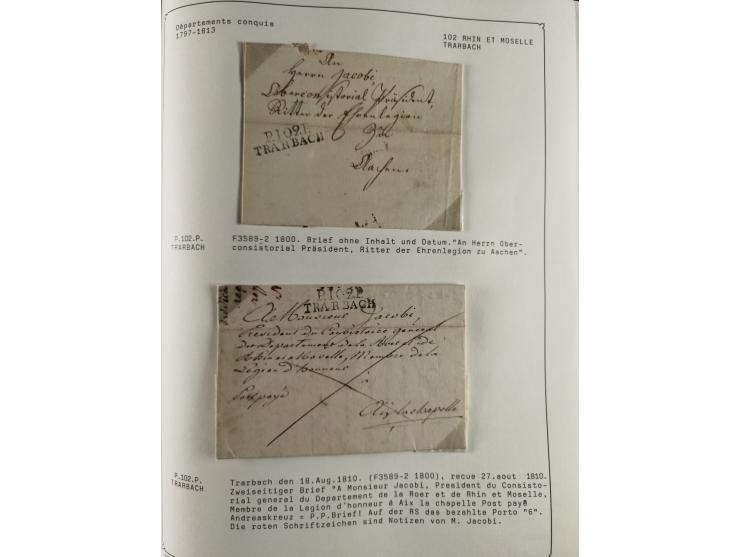 Départements conquis
1797-1813
102 RHIN ET MOSELLE
TRARBACH
An
Herrn Jacobi,
Oberconsistorial Präsident,
Ritter der Ehrenlegion
zu
Aachen.
P.102.P.
TRARBACH
P.102.P.
TRARBACH
F3589-2 1800. Brief ohne Inhalt und Datum."An Herrn Ober-
consistorial Präsident, Ritter der Ehrenlegion zu Aachen".
P.102.P.
TRARBACH
A Monsieur Jacobi,
President du Consistoire général
du Departement de la Roer et de
Rhin et Moselle, Membre de la
Légion d'honneur
à
Postpayé
Aix la chapelle
P.102.P.
TRARBACH
Trarbach den 18.Aug.1810. (F3589-2 1800), recue 27.aout 1810.
Zweiseitiger Brief "A Monsieur Jacobi, President du Consisto-
rial general du Departement de la Roer et de Rhin et Moselle,
Membre de la Legion d'honneur à Aix la chapelle Post payé
Andreaskreuz = P.P.Brief! Auf der RS das bezahlte Porto "6".
Die roten Schriftzeichen sind Notizen von M. Jacobi.